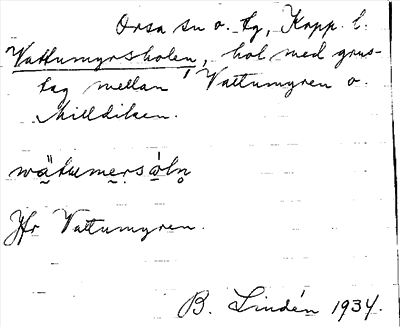 Orsa sn o. tg, Kopp. l.
Vattumyrsholen, hol med grus-
tag mellan Vattumyren o.
Milldiken.
Jfr Vattumyren.
B. Lindén 1934.